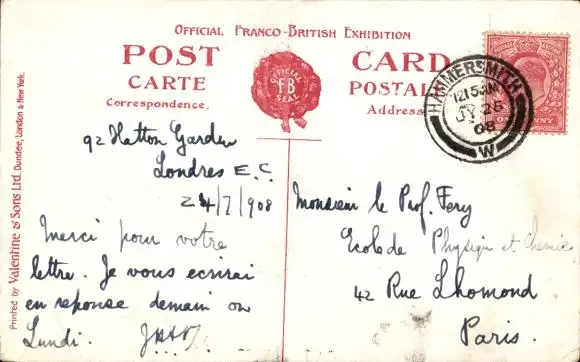 OFFICIAL FRANCO-BRITISH EXHIBITION
POST CARD
CARTE POSTALE
Correspondence.
Address
OFFICIAL
FB
SEAL
HAMMERSMITH
12 15 AM
JY 25
08
W
ONE PENNY
Printed by Valentine & Sons Ltd. Dundee, London & New York.
92 Hatton Garden
Londres E.C.
24/7/908
Merci pour votre
lettre. Je vous ecrirai
en reponse demain ou
Lundi.
Monsieur le Prof. Fery
Ecole de Physique et Chemie
42 Rue Lhomond
Paris.